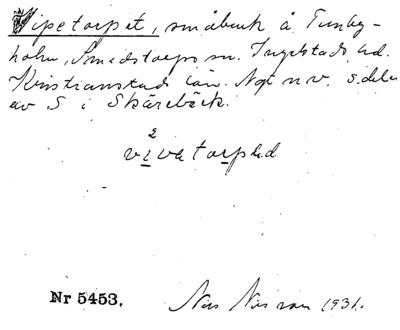 Vipetorpet, småbruk å Tunby-
holm, Smedstorps sn. Ingelstads hd.
Kristianstads län. Ngt nv. s. delen
av S i Skärebäck.
2
vivatorpəd
Nr 5453.
Nils Nilsson 1931.